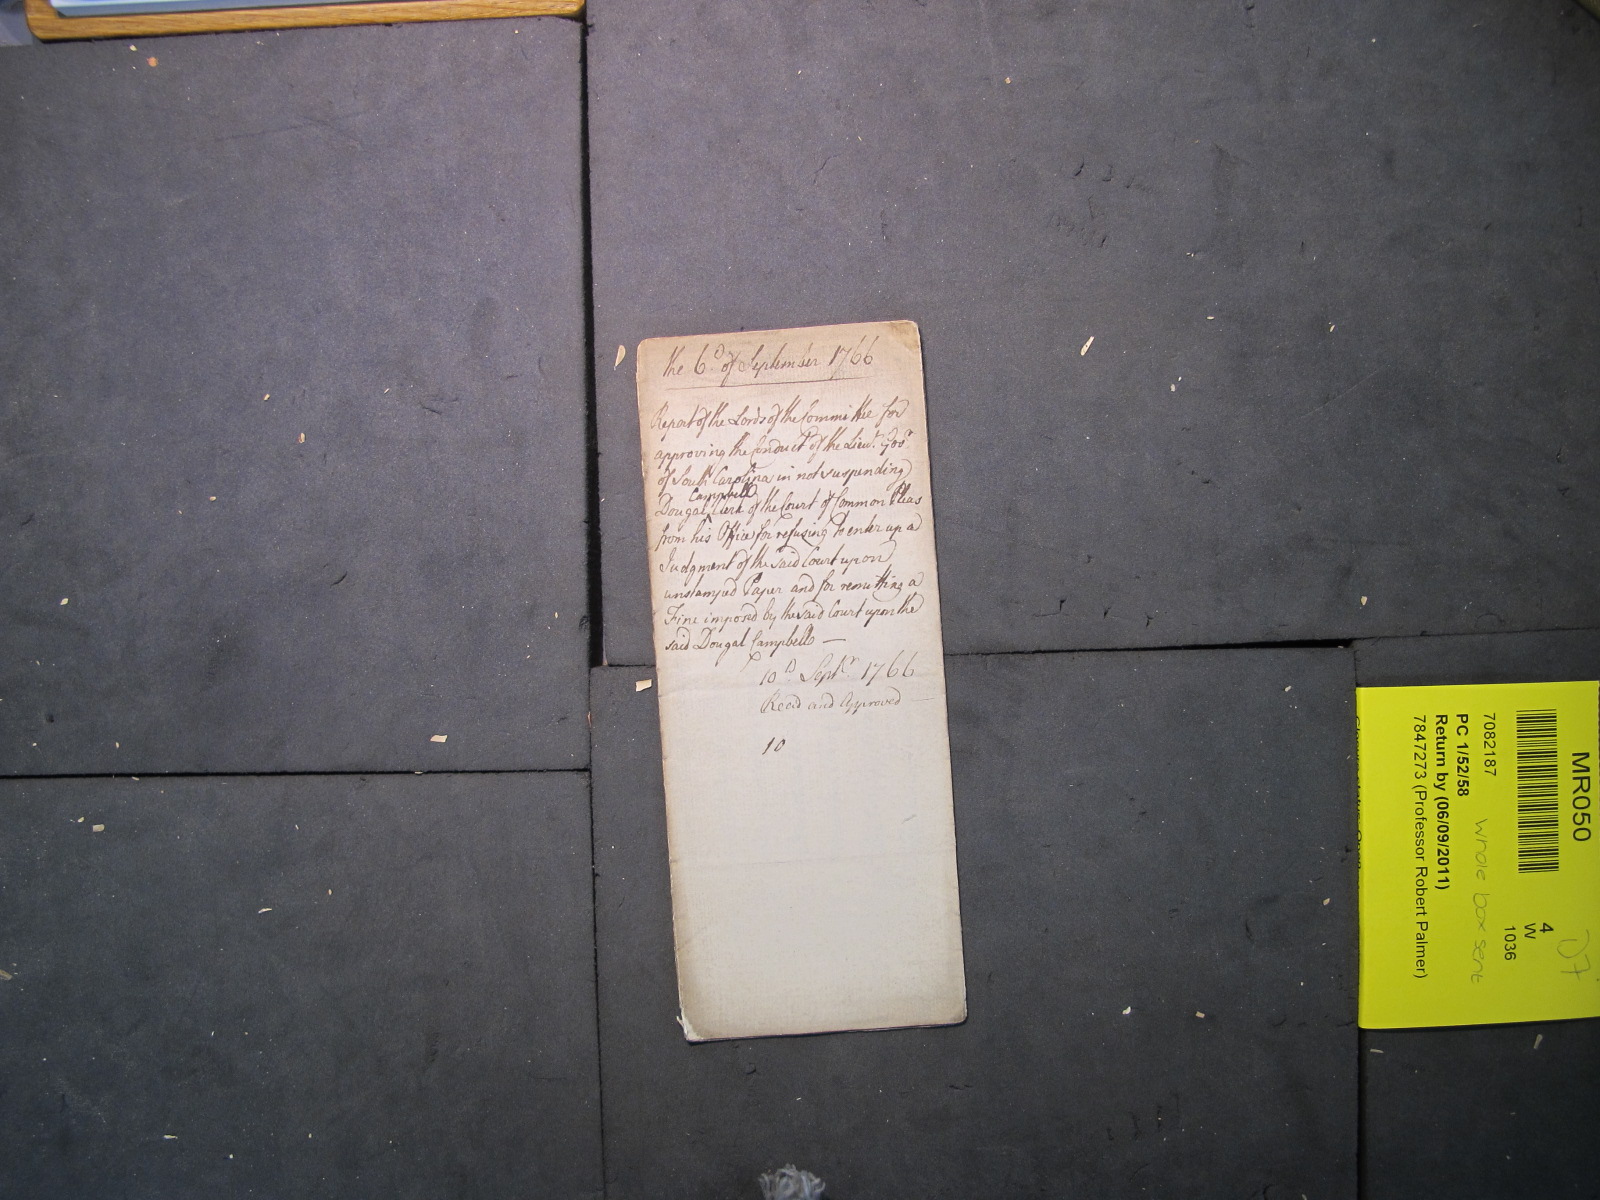 the 6th of September 1766
Report of the Lords of the Committee for
approving the Conduct of the Lieut. Govr
of South Carolina in not suspending
Campbell
Dougal Clerk of the Court of Common Pleas
from his Office for refusing to enter up a
Judgment of the said Court upon
unstamped Paper and for remitting a
Fine imposed by the said Court upon the
said Dougal Campbell —
10th Septr 1766
Read and Approved
10
MR050
4
W
1036
7082187
whole box sent
PC 1/52/58
Return by (06/09/2011)
7847273 (Professor Robert Palmer)